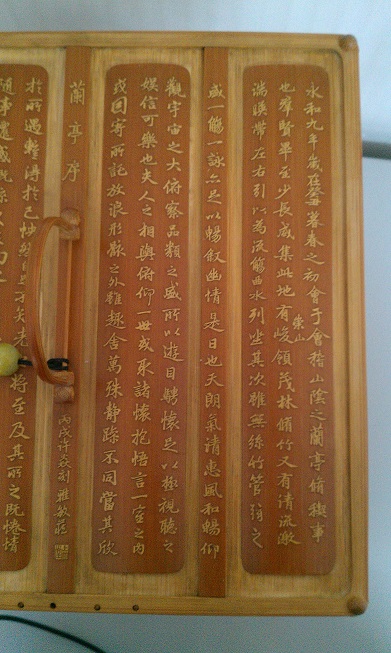 永和九年歲在癸丑暮春之初會于會稽山陰之蘭亭脩稧事
也羣賢畢至少長咸集此地有崇山峻領茂林脩竹又有清流激
湍暎帶左右引以為流觴曲水列坐其次雖無絲竹管弦之
盛一觴一詠亦足以暢叙幽情是日也天朗氣清惠風和暢仰
觀宇宙之大俯察品類之盛所以遊目騁懷足以極視聽之
娛信可樂也夫人之相與俯仰一世或取諸懷抱悟言一室之內
或因寄所託放浪形骸之外雖趣舍萬殊静躁不同當其欣
蘭亭序
丙戌許焱刻雅敏藏
於所遇蹔得於己怏然自足不知老將至及其所之既惓情
隨事遷感慨係